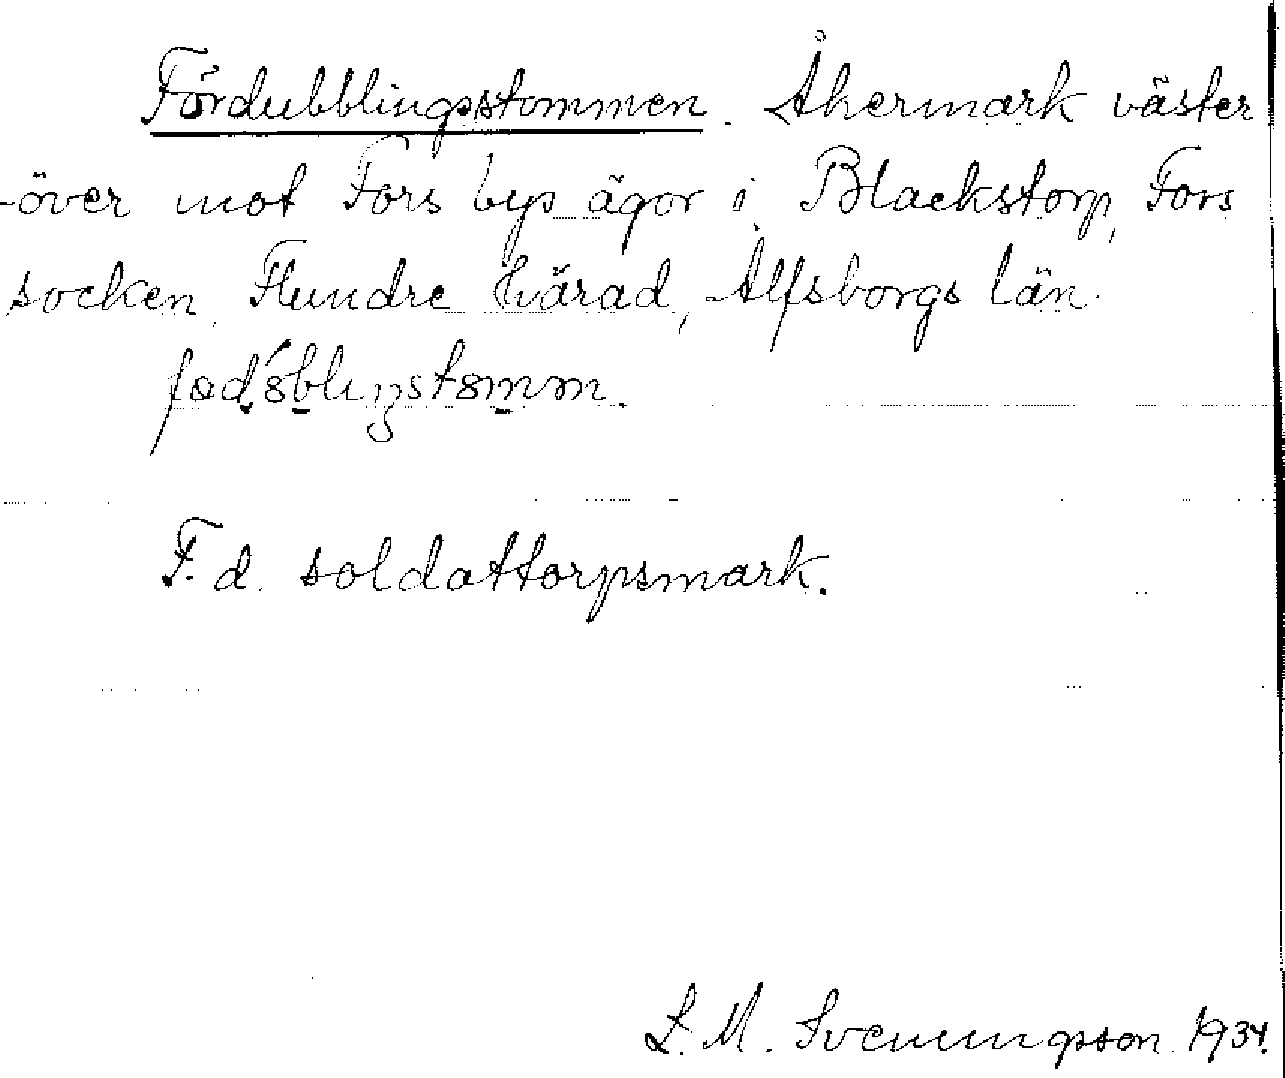 Fördubblingsstommen. Åkermark väster
över mot Fors bys ägor i Blackstorp, Fors
socken, Flundre härad, Älfsborgs län.
F. d. soldattorpsmark.
L. M. Svenungsson 1934.